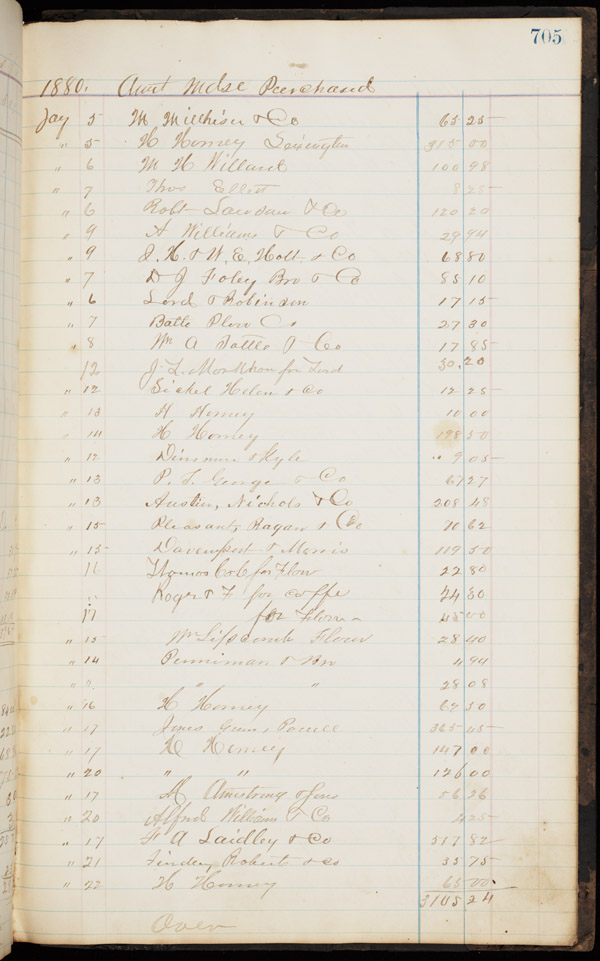 705
1880. Amt Mdse Purchased
Jay 5 M Millhiser & Co 65 25
" 5 H Horney Lexington 315 00
" 6 M H Willard 100 98
" 7 Thos Elliott 8 25
" 6 Robt & Co 120 20
" 9 A Williams & Co 29 94
" 9 J. H. & W. E. Holt & Co 68 80
" 7 D J Foley Bro & Co 85 10
" 6 Lord & Robinson 17 15
" 7 Battle Plow Co 27 30
" 8 Wm A Tottle & Co 17 85
12 J. L. for Lord 30.20
" 12 Sickel Helen & Co 12 25
" 13 H Horney 10 00
" 14 H Horney 198 50
" 12 Dinsmore & Kyle " 9 05
" 13 P. T. George & Co 67 27
" 13 Austin, Nichols & Co 208 48
" 15 Pleasants Ragan & Co 70 62
" 15 Davenport & Morris 109 50
16 for Flour 22 80
" Roger & F for coffe 74 30
17 for Flour 45 00
" 15 Wm Lipscomb Flour 28 40
" 14 Penniman & Bro 4 94
" " " " 28 08
" 16 H Horney 64 30
" 17 Jones Powell 365 45
" 17 H Horney 147 00
" 20 " " 126 00
" 17 Armstrong & Sons 56 26
" 20 Alfred William & Co 4 25
" 17 F A Laidley & Co 517 82
" 21 Findley Robert & Co 35 75
" 22 H Horney 65 00
3105 24
Over